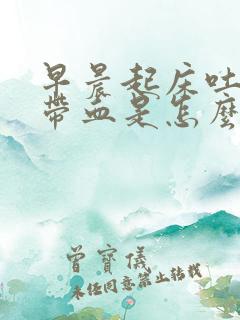 早晨起床吐
帶血是怎麼
曾寶儀
未经同意禁止转载